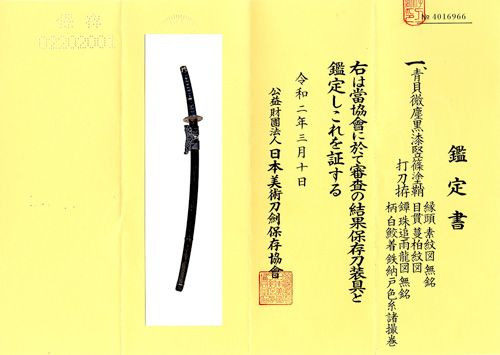 № 4016966
鑑定書
一、青貝微塵黒漆竪篠塗鞘
打刀拵
縁頭 素紋図 無銘
目貫 蔓柏紋図
鐔 珠追雨龍図 無銘
柄 白鮫着鉄納戸色糸諸撮巻
右は當協會に於て審査の結果保存刀装具と
鑑定しこれを証する
令和二年三月十日
公益財團法人 日本美術刀劍保存協會